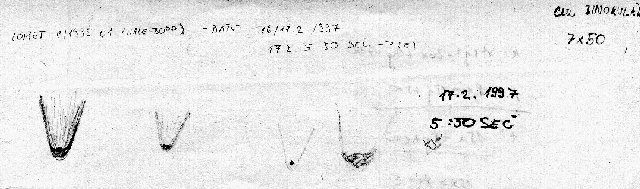 COMET C/1995 O1 (HALE-BOPP) - DATE 16/17.2.1997
17.2. 5:30 SEČ
BINOKULÁR
7x50
17.2.1997
5:30 SEČ